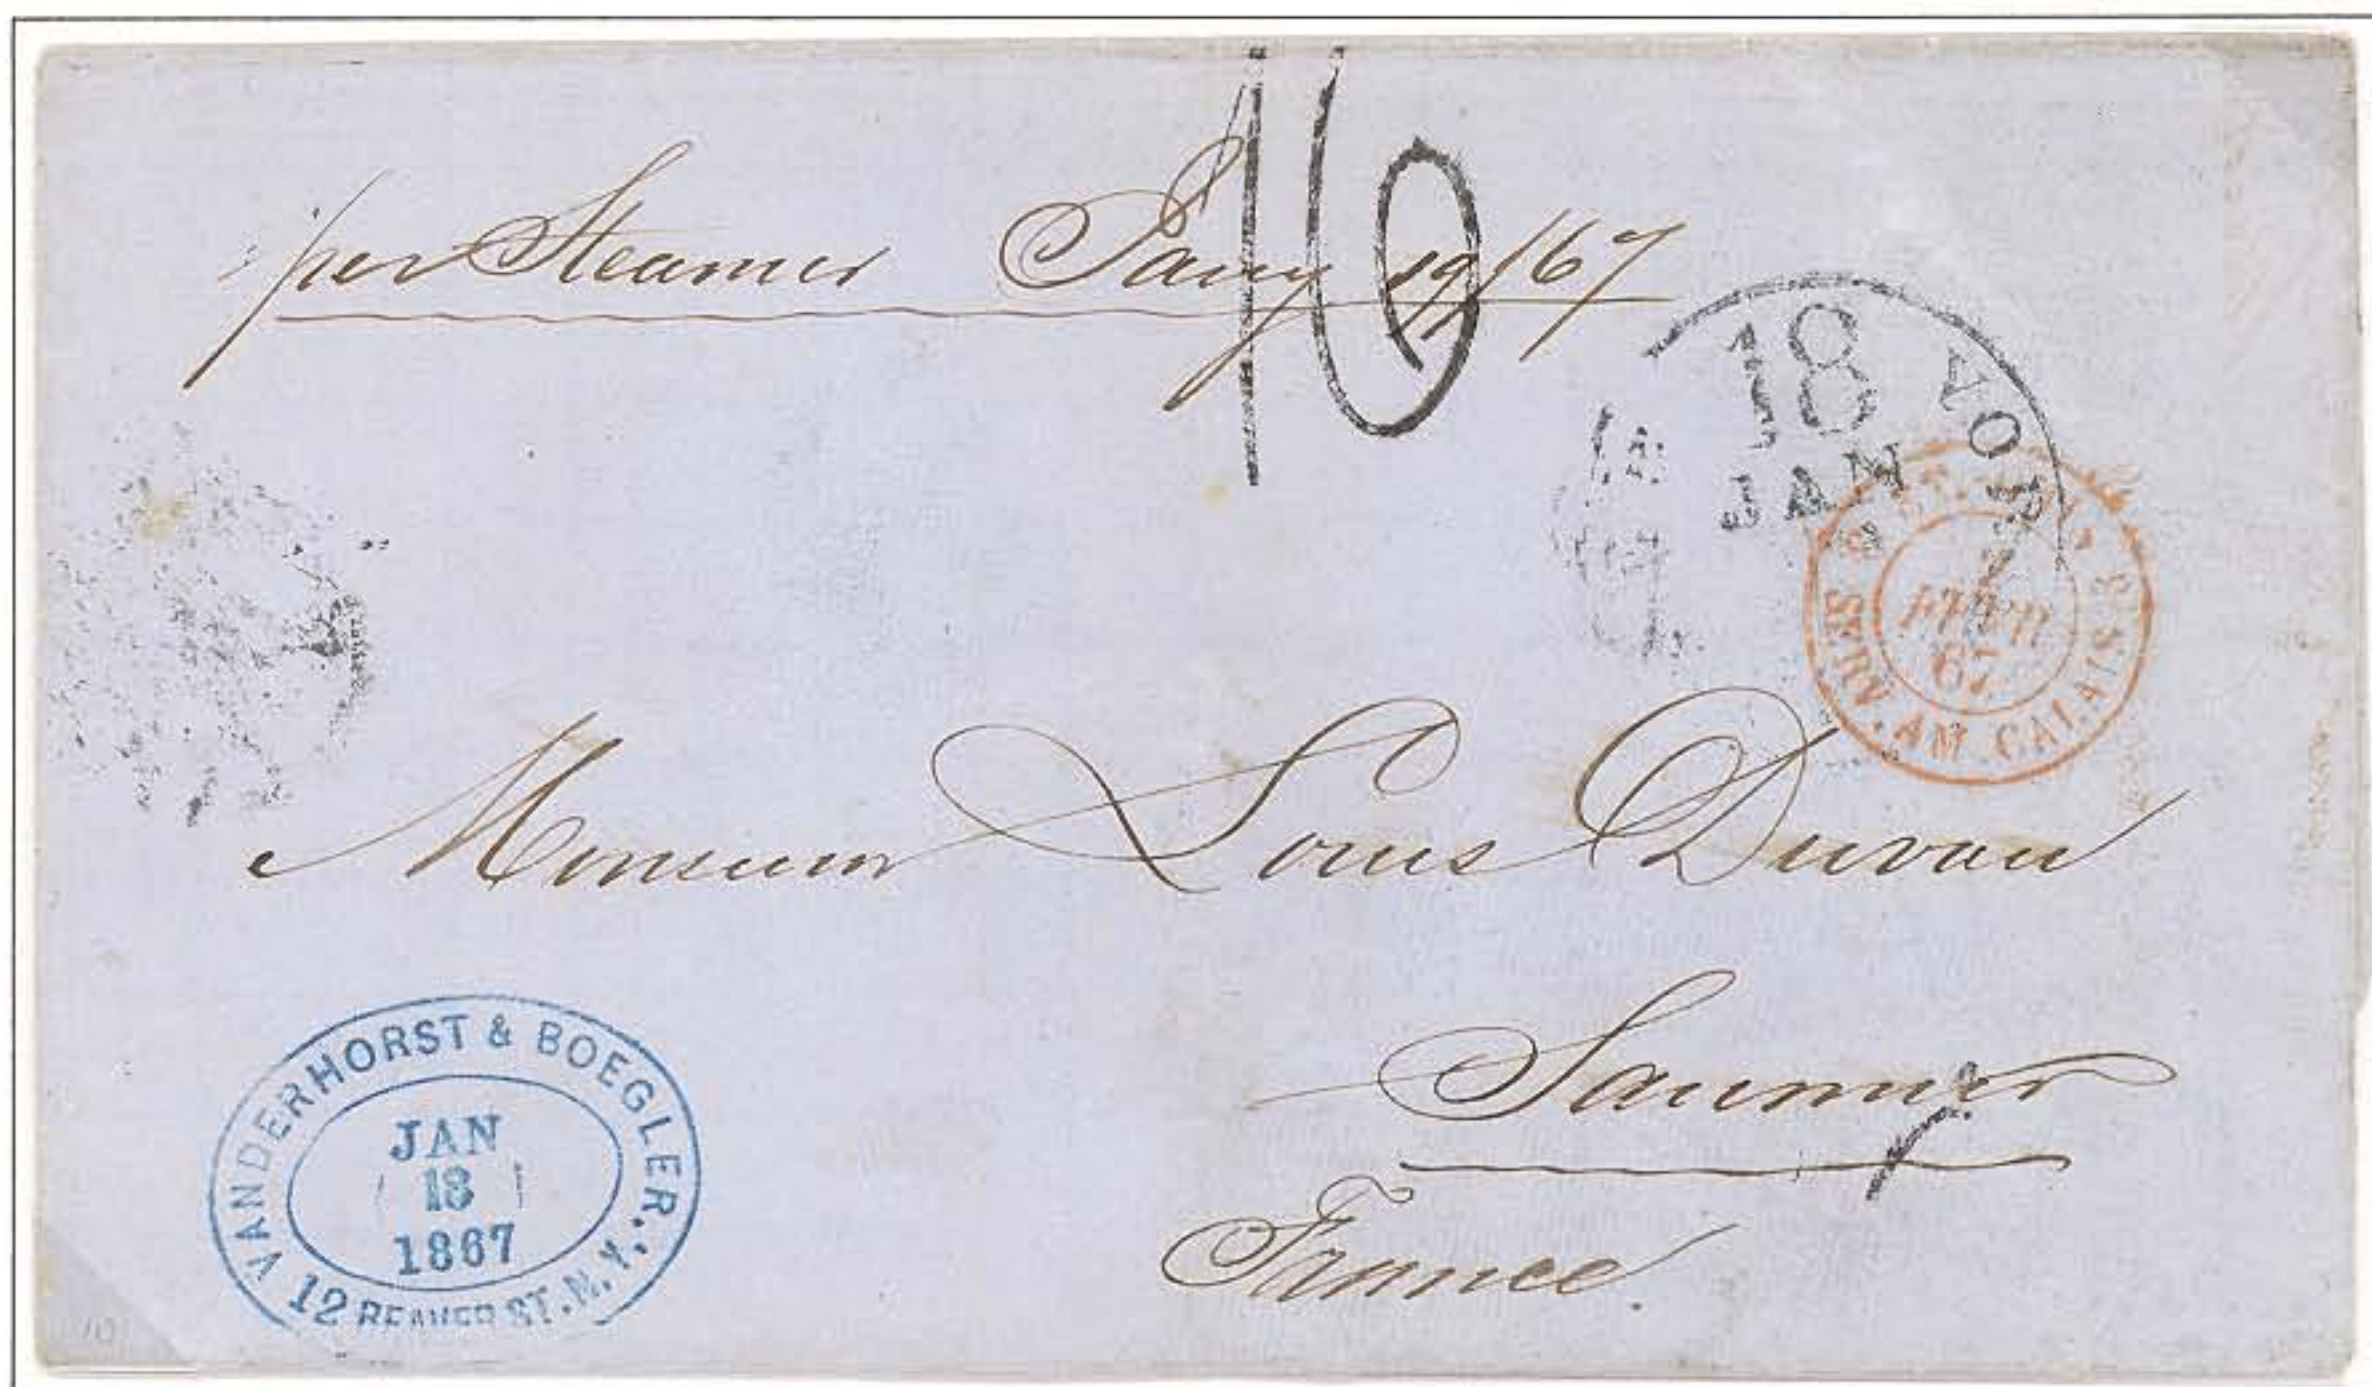 16
per Steamer Jany 19/67
YORK
18
JAN
2
FEVR
67
SERV. AM. CALAIS
Monsieur Louis Duvau
Saumur
France.
VANDERHORST & BOEGLER.
JAN
18
1867
12 BEAVER ST. N.Y.